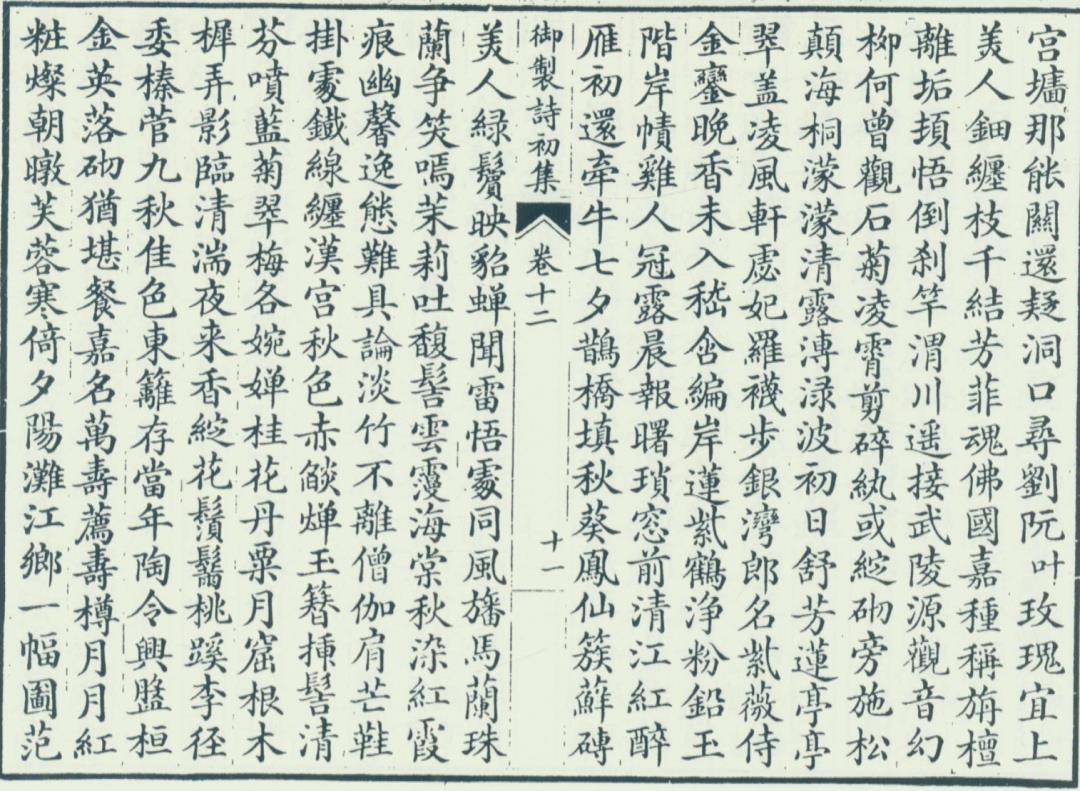 宫墻那能關還疑洞口尋劉阮叶玫瑰宜上
美人鈿纏枝千結芳菲魂佛國嘉種稱旃檀
離垢頓悟倒刹竿渭川遥接武陵源觀音幻
柳何曾觀石菊凌霄剪碎紈或綻砌旁施松
顛海桐濛濛清露漙渌波初日舒芳蓮亭亭
翠盖凌風軒虙妃羅襪步銀灣郎名紫薇侍
金鑾晚香未入嵇含編岸蓮紫鶴浄粉鉛玉
階岸幘雞人冠露晨報曙瑣窓前清江紅醉
雁初還牽牛七夕鵲橋填秋葵鳳仙簇蘚磚
御製詩初集 卷十二 十一
美人緑鬟映貂蝉聞雷悟處同風旛馬蘭珠
蘭争笑嘕茉莉吐馥髻雲霻海棠秋染紅霞
痕幽馨逸態難具論淡竹不離僧伽肩芒鞋
掛處鐵線纏漢宫秋色赤燄燀玉簪挿髻清
芬噴藍菊翠梅各婉嬋桂花丹粟月窟根木
樨弄影臨清湍夜来香綻花鬚鬜桃蹊李径
委榛菅九秋佳色東籬存當年陶令興盤桓
金英落砌猶堪餐嘉名萬壽薦壽樽月月紅
粧燦朝暾芙蓉寒倚夕陽灘江鄉一幅圖范